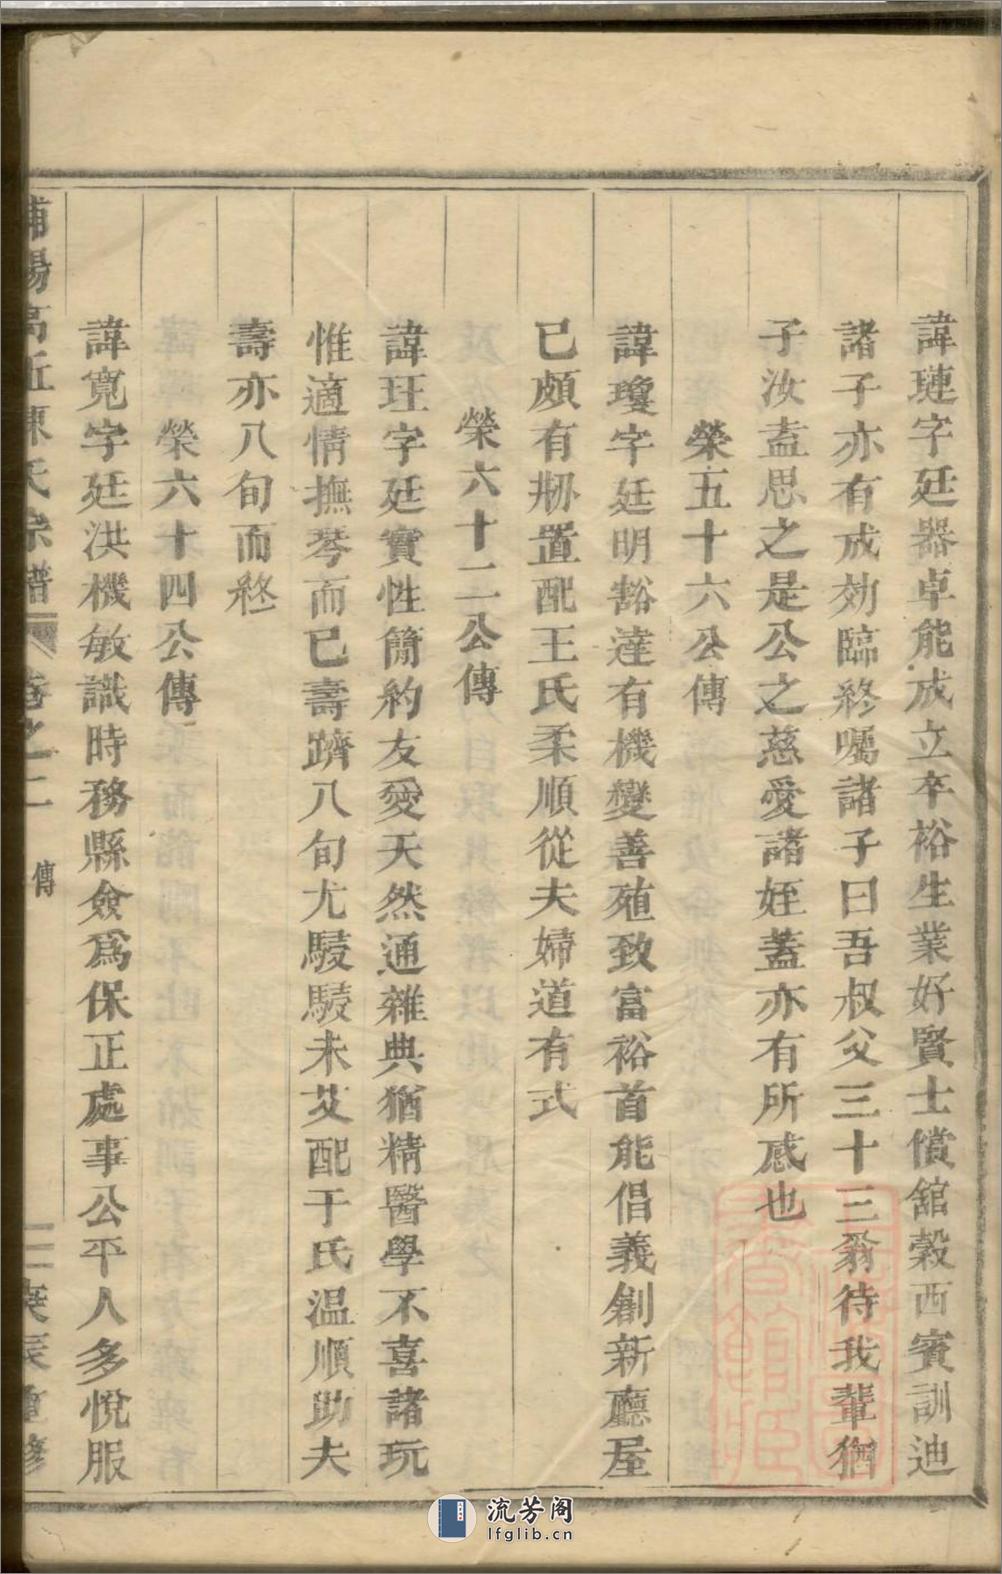 諱璉字廷器卓能成立卒裕生業好賢士償舘穀西賓訓迪
諸子亦有成効臨終囑諸子曰吾叔父三十三翁待我輩猶
子汝盍思之是公之慈愛諸姪蓋亦有所感也
榮五十六公傳
諱瓊字廷明豁達有機變善殖致富裕首能倡義創新廳屋
已頗有剙置配王氏柔順從夫婦道有式
榮六十二公傳
諱玨字廷寶性簡約友愛天然通雜典猶精醫學不喜諸玩
惟適情撫琴而已壽躋八旬尤駸駸未艾配于氏温順助夫
壽亦八旬而終
榮六十四公傳
諱寬字廷洪機敏識時務縣僉爲保正處事公平人多悅服
浦陽高丘陳氏宗譜 卷之二 傳 庚辰重修
流芳阁
lfglib.cn